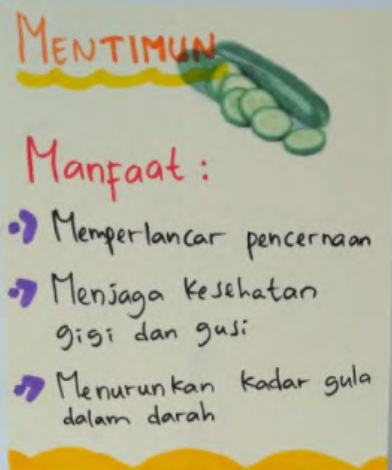 MENTIMUN
Manfaat :
Memperlancar pencernaan
Menjaga kesehatan
gigi dan gusi
Menurunkan kadar gula
dalam darah